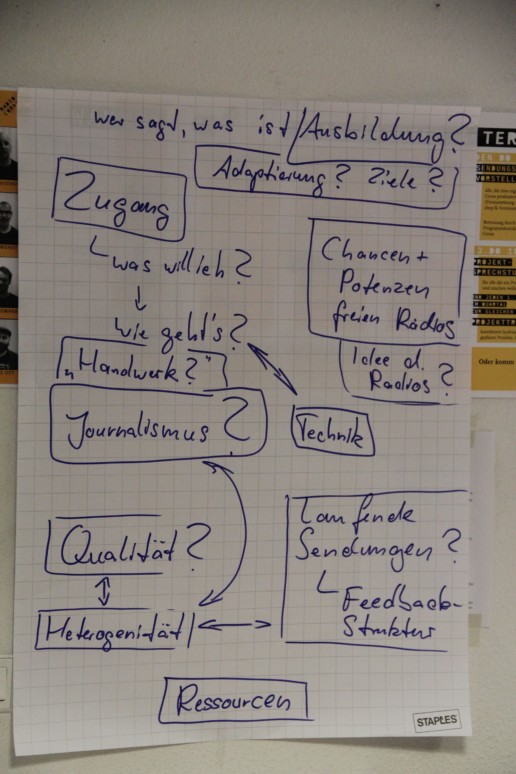 wer sagt, was ist Ausbildung?
Adaptierung? Ziele?
Zugang
was will ich?
Chancen +
Potenzen
freien Radios
wie geht's?
"Handwerk?"
Idee d.
Radios?
Journalismus?
Technik
Laufende
Sendungen?
Feedback-
Struktur
Qualität?
Heterogenität
Ressourcen
STAPLES
TER
PROJEKT-
Oder komm